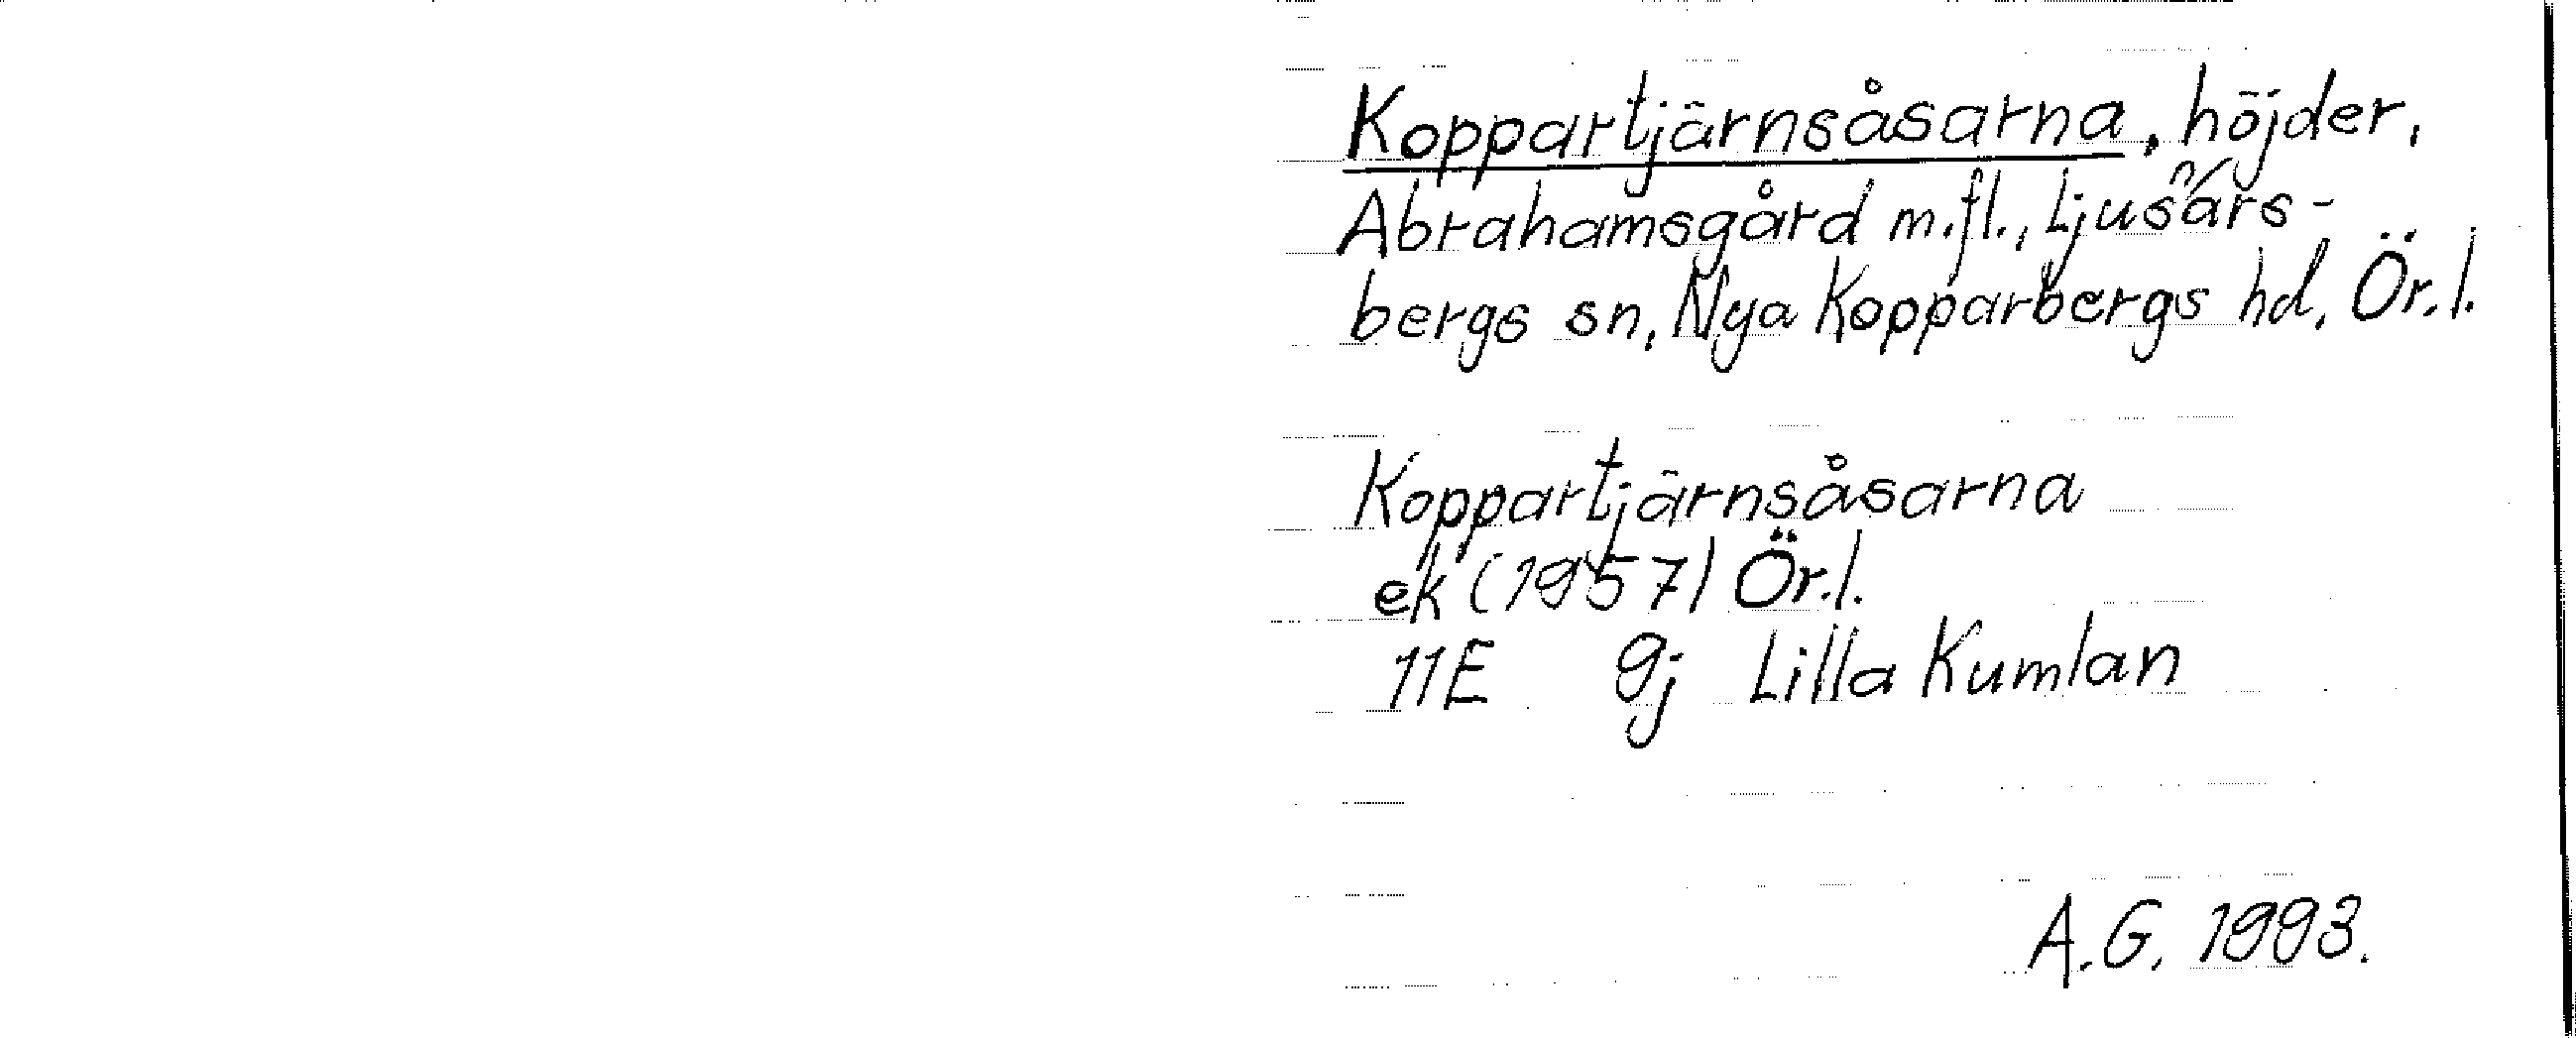 Koppartjärnsåsarna, höjder,
Abrahamsgård m.fl., Ljusnars-
bergs sn, Nya Kopparbergs hd, Ör.l.
Koppartjärnsåsarna
ek (1957) Ör.l.
11E 9j Lilla Kumlan
A.G. 1993.